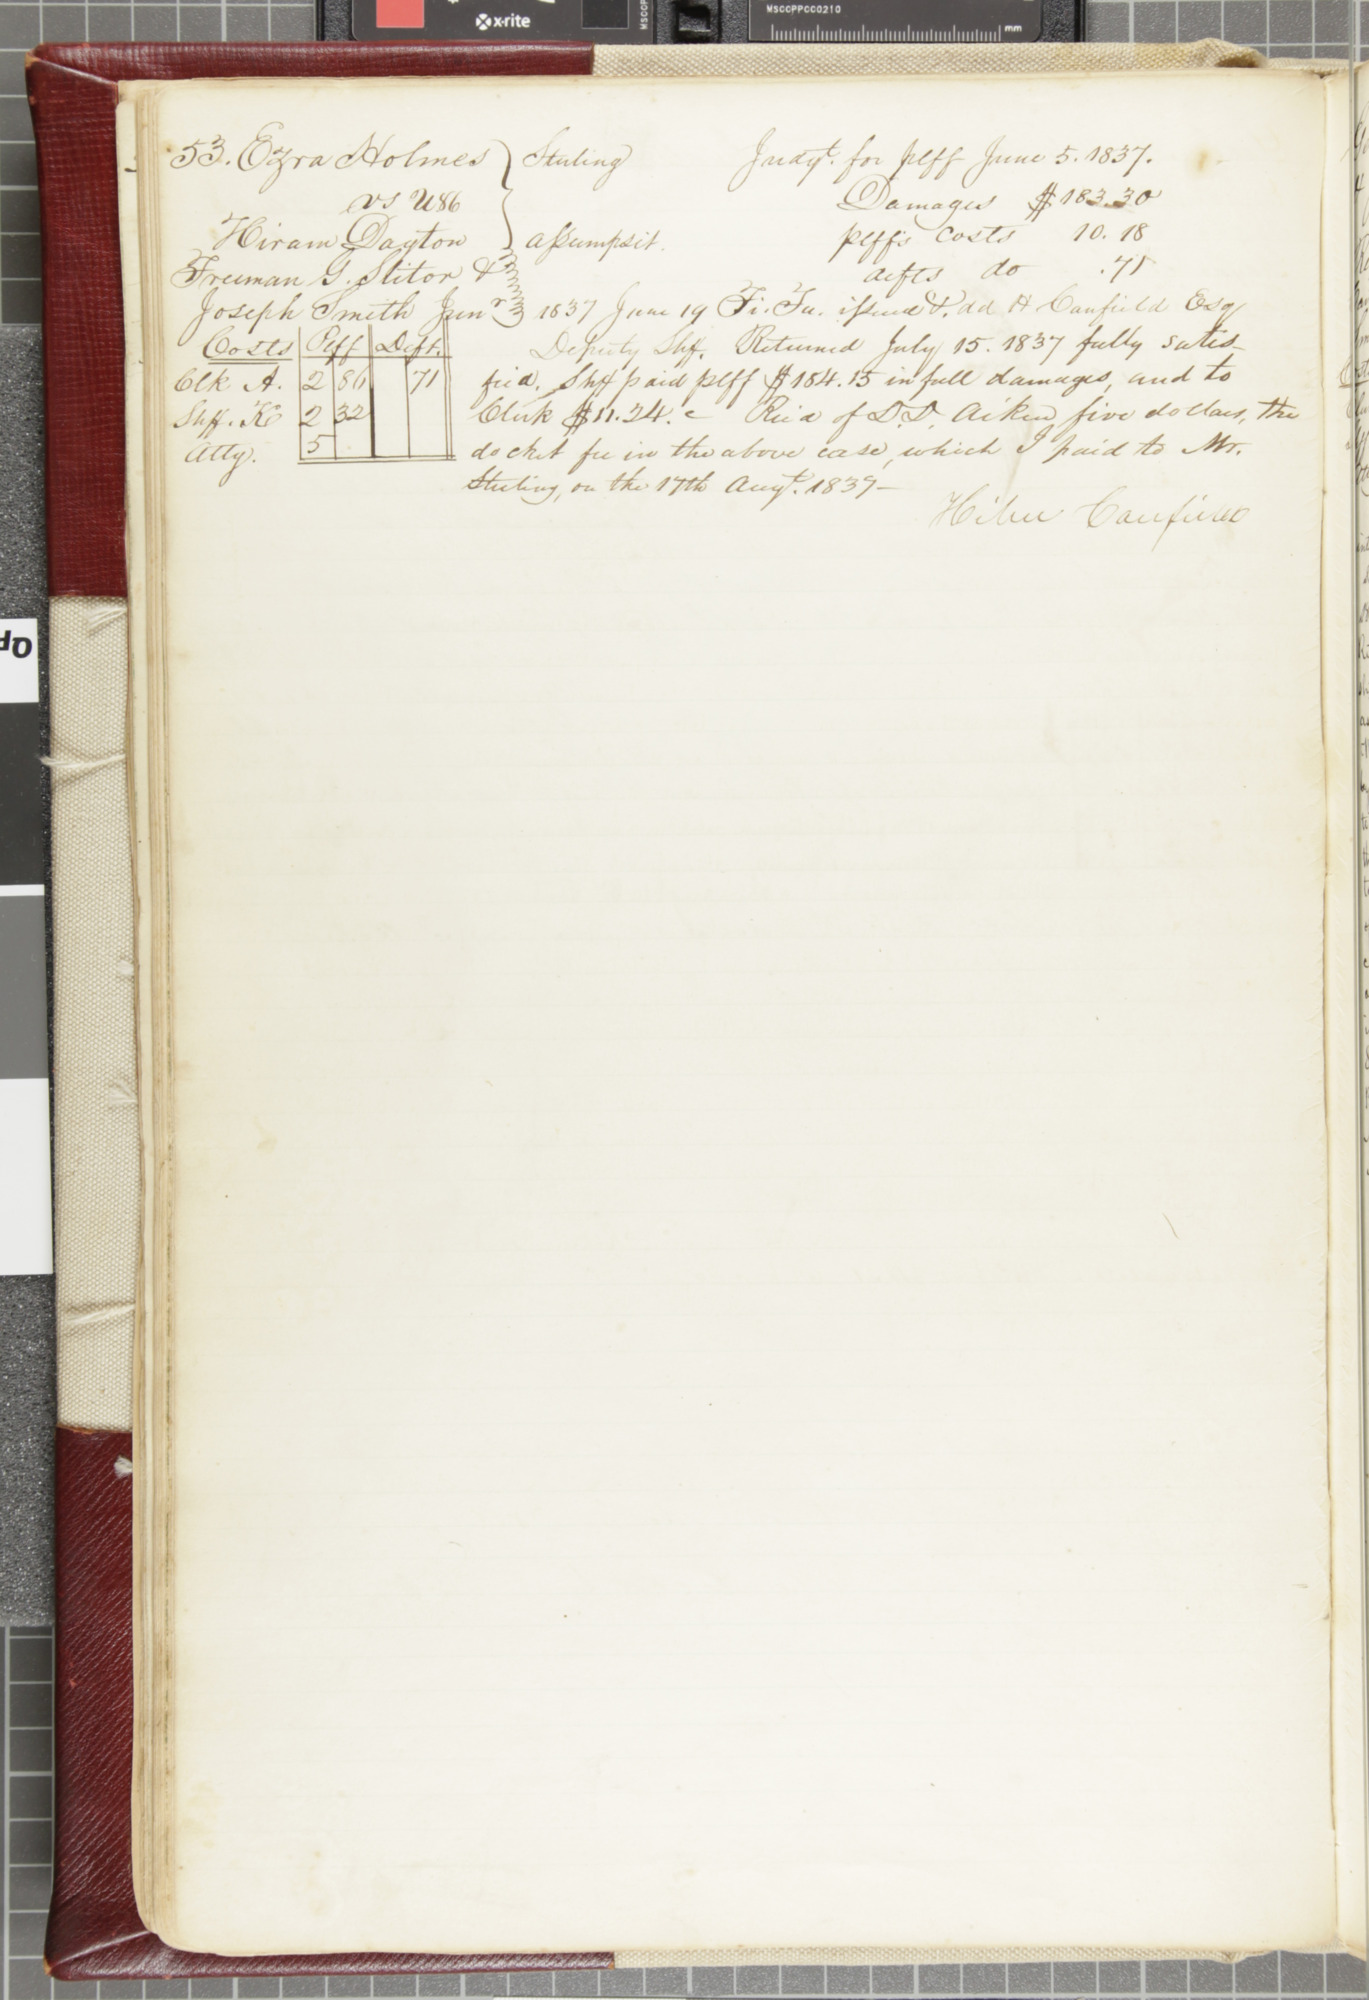 x-rite
MSCCPPCC0210
mm
53. Ezra Holmes Sterling Judgt. for plff June 5. 1837.
vs U86 Damages $183.30
Hiram Dayton assumpsit. plffs costs 10.18
Freeman G. Slitor & defts do .71
Joseph Smith Junr 1837 June 19 Fi. Fa. issued & dd H Canfield Esq
Costs Plff Deft. Deputy Shff. Returned July 15. 1837 fully satis-
Clk A. 2 86 71 fied. Shff paid plff $184.15 in full damages, and to
Shff. K 2 32 Clerk $11.24. Recd of D.D. Aiken five dollars, the
Atty. 5 docket fee in the above case, which I paid to Mr.
Sterling, on the 17th Augt. 1837-
Canfield